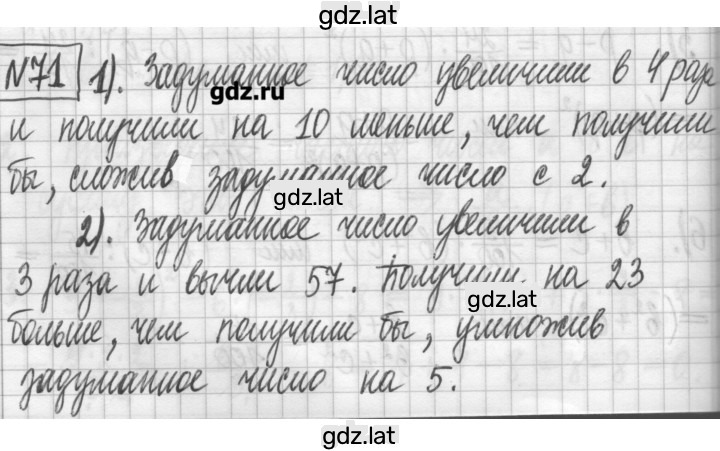 gdz.lat
№71 1). Задуманное число увеличили в 4 раза
gdz.ru
и получили на 10 меньше, чем получили
бы, сложив задуманное число с 2.
gdz.lat
2). Задуманное число увеличили в
3 раза и вычли 57. Получили на 23
gdz.lat
больше, чем получили бы, умножив
задуманное число на 5.
gdz.lat